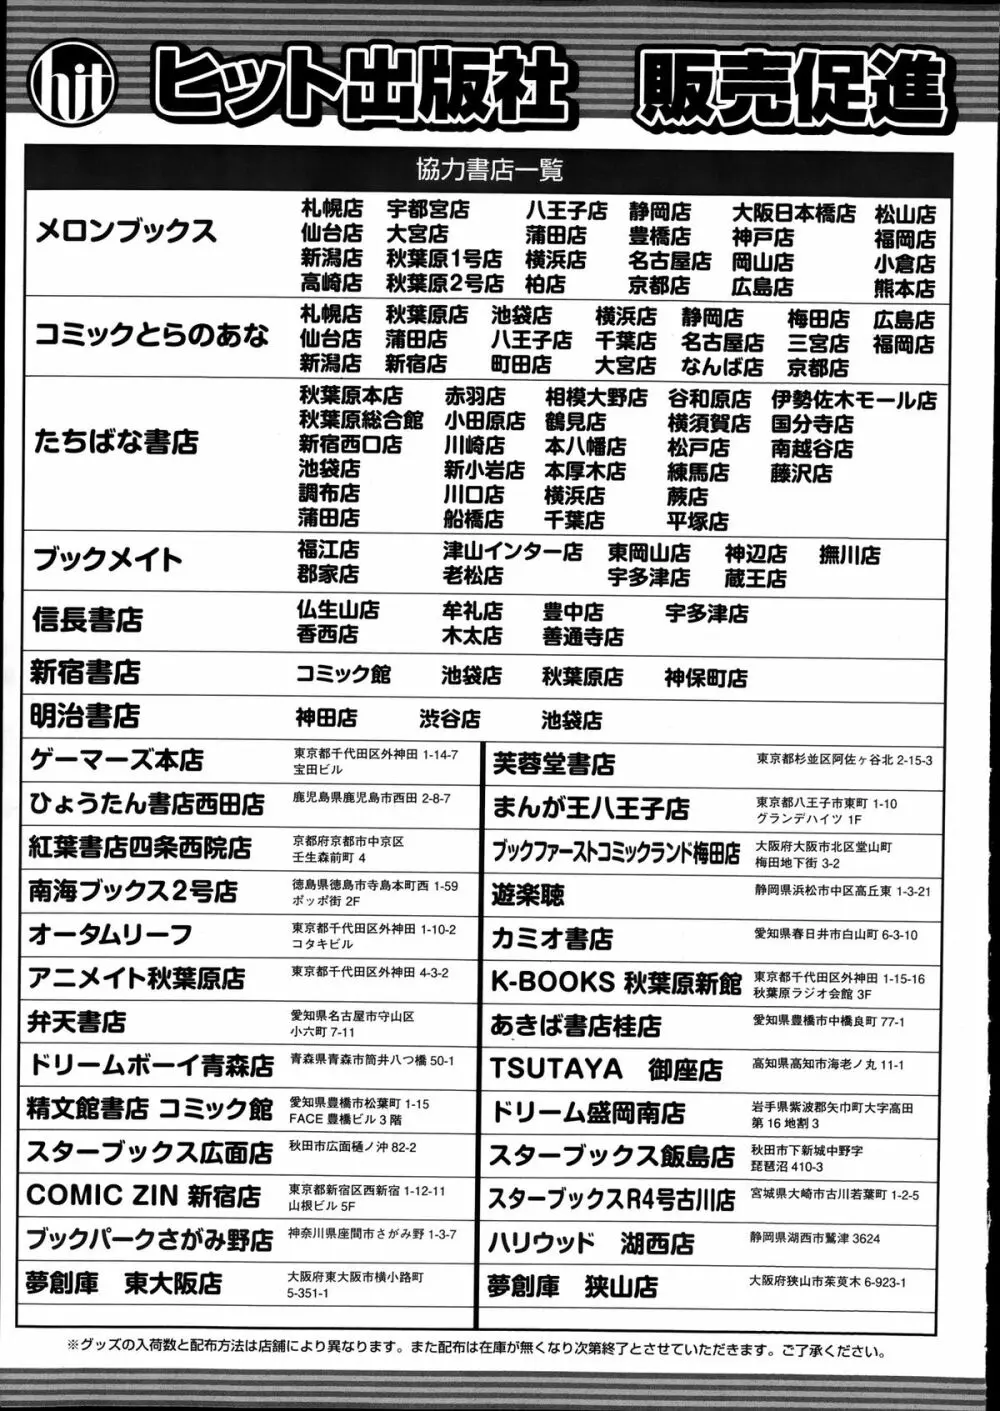 hit ヒット出版社 販売促進
協力書店一覧
メロンブックス
札幌店 宇都宮店 八王子店 静岡店 大阪日本橋店 松山店
仙台店 大宮店 蒲田店 豊橋店 神戸店 福岡店
新潟店 秋葉原1号店 横浜店 名古屋店 岡山店 小倉店
高崎店 秋葉原2号店 柏店 京都店 広島店 熊本店
コミックとらのあな
札幌店 秋葉原店 池袋店 横浜店 静岡店 梅田店 広島店
仙台店 蒲田店 八王子店 千葉店 名古屋店 三宮店 福岡店
新潟店 新宿店 町田店 大宮店 なんば店 京都店
たちばな書店
秋葉原本店 赤羽店 相模大野店 谷和原店 伊勢佐木モール店
秋葉原総合館 小田原店 鶴見店 横須賀店 国分寺店
新宿西口店 川崎店 本八幡店 松戸店 南越谷店
池袋店 新小岩店 本厚木店 練馬店 藤沢店
調布店 川口店 横浜店 蕨店
蒲田店 船橋店 千葉店 平塚店
ブックメイト
福江店 津山インター店 東岡山店 神辺店 撫川店
郡家店 老松店 宇多津店 蔵王店
信長書店
仏生山店 牟礼店 豊中店 宇多津店
香西店 木太店 善通寺店
新宿書店 コミック館 池袋店 秋葉原店 神保町店
明治書店 神田店 渋谷店 池袋店
ゲーマーズ本店 東京都千代田区外神田 1-14-7
宝田ビル
芙蓉堂書店 東京都杉並区阿佐ヶ谷北 2-15-3
ひょうたん書店西田店 鹿児島県鹿児島市西田 2-8-7
まんが王八王子店 東京都八王子市東町 1-10
グランデハイツ 1F
紅葉書店四条西院店 京都府京都市中京区
壬生森前町 4
ブックファーストコミックランド梅田店 大阪府大阪市北区堂山町
梅田地下街 3-2
南海ブックス2号店 徳島県徳島市寺島本町西 1-59
ポッポ街 2F
遊楽聴 静岡県浜松市中区高丘東 1-3-21
オータムリーフ 東京都千代田区外神田 1-10-2
コタキビル
カミオ書店 愛知県春日井市白山町 6-3-10
アニメイト秋葉原店 東京都千代田区外神田 4-3-2
K-BOOKS 秋葉原新館 東京都千代田区外神田 1-15-16
秋葉原ラジオ会館 3F
弁天書店 愛知県名古屋市守山区
小六町 7-11
あきば書店桂店 愛知県豊橋市中橋良町 77-1
ドリームボーイ青森店 青森県青森市筒井八つ橋 50-1
TSUTAYA 御座店 高知県高知市海老ノ丸 11-1
精文館書店 コミック館 愛知県豊橋市松葉町 1-15
FACE 豊橋ビル 3 階
ドリーム盛岡南店 岩手県紫波郡矢巾町大字高田
第 16 地割 3
スターブックス広面店 秋田市広面樋ノ沖 82-2
スターブックス飯島店 秋田市下新城中野字
琵琶沼 410-3
COMIC ZIN 新宿店 東京都新宿区西新宿 1-12-11
山根ビル 5F
スターブックスR4号古川店 宮城県大崎市古川若葉町 1-2-5
ブックパークさがみ野店 神奈川県座間市さがみ野 1-3-7
ハリウッド 湖西店 静岡県湖西市鷲津 3624
夢創庫 東大阪店 大阪府東大阪市横小路町
5-351-1
夢創庫 狭山店 大阪府狭山市茱萸木 6-923-1
※グッズの入荷数と配布方法は店舗により異なります。また配布は在庫が無くなり次第終了とさせていただきます。ご了承ください。